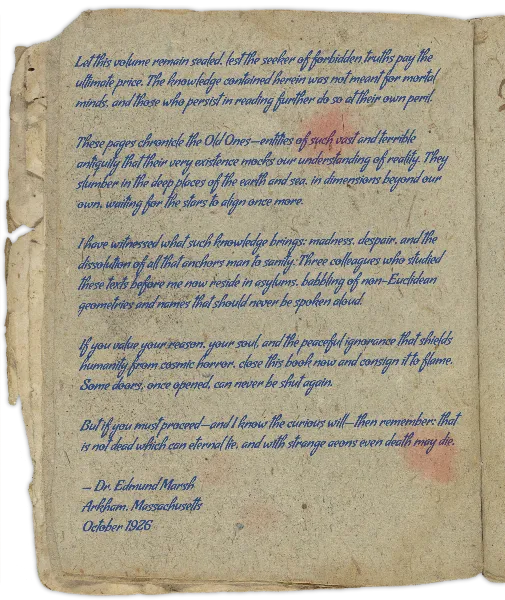 Let this volume remain sealed, lest the seeker of forbidden truths pay the
ultimate price. The knowledge contained herein was not meant for mortal
minds, and those who persist in reading further do so at their own peril.
These pages chronicle the Old Ones—entities of such vast and terrible
antiquity that their very existence mocks our understanding of reality. They
slumber in the deep places of the earth and sea, in dimensions beyond our
own, waiting for the stars to align once more.
I have witnessed what such knowledge brings: madness, despair, and the
dissolution of all that anchors man to sanity. Three colleagues who studied
these texts before me now reside in asylums, babbling of non-Euclidean
geometries and names that should never be spoken aloud.
If you value your reason, your soul, and the peaceful ignorance that shields
humanity from cosmic horror, close this book now and consign it to flame.
Some doors, once opened, can never be shut again.
But if you must proceed—and I know the curious will—then remember: that
is not dead which can eternal lie, and with strange aeons even death may die.
— Dr. Edmund Marsh
Arkham, Massachusetts
October 1926